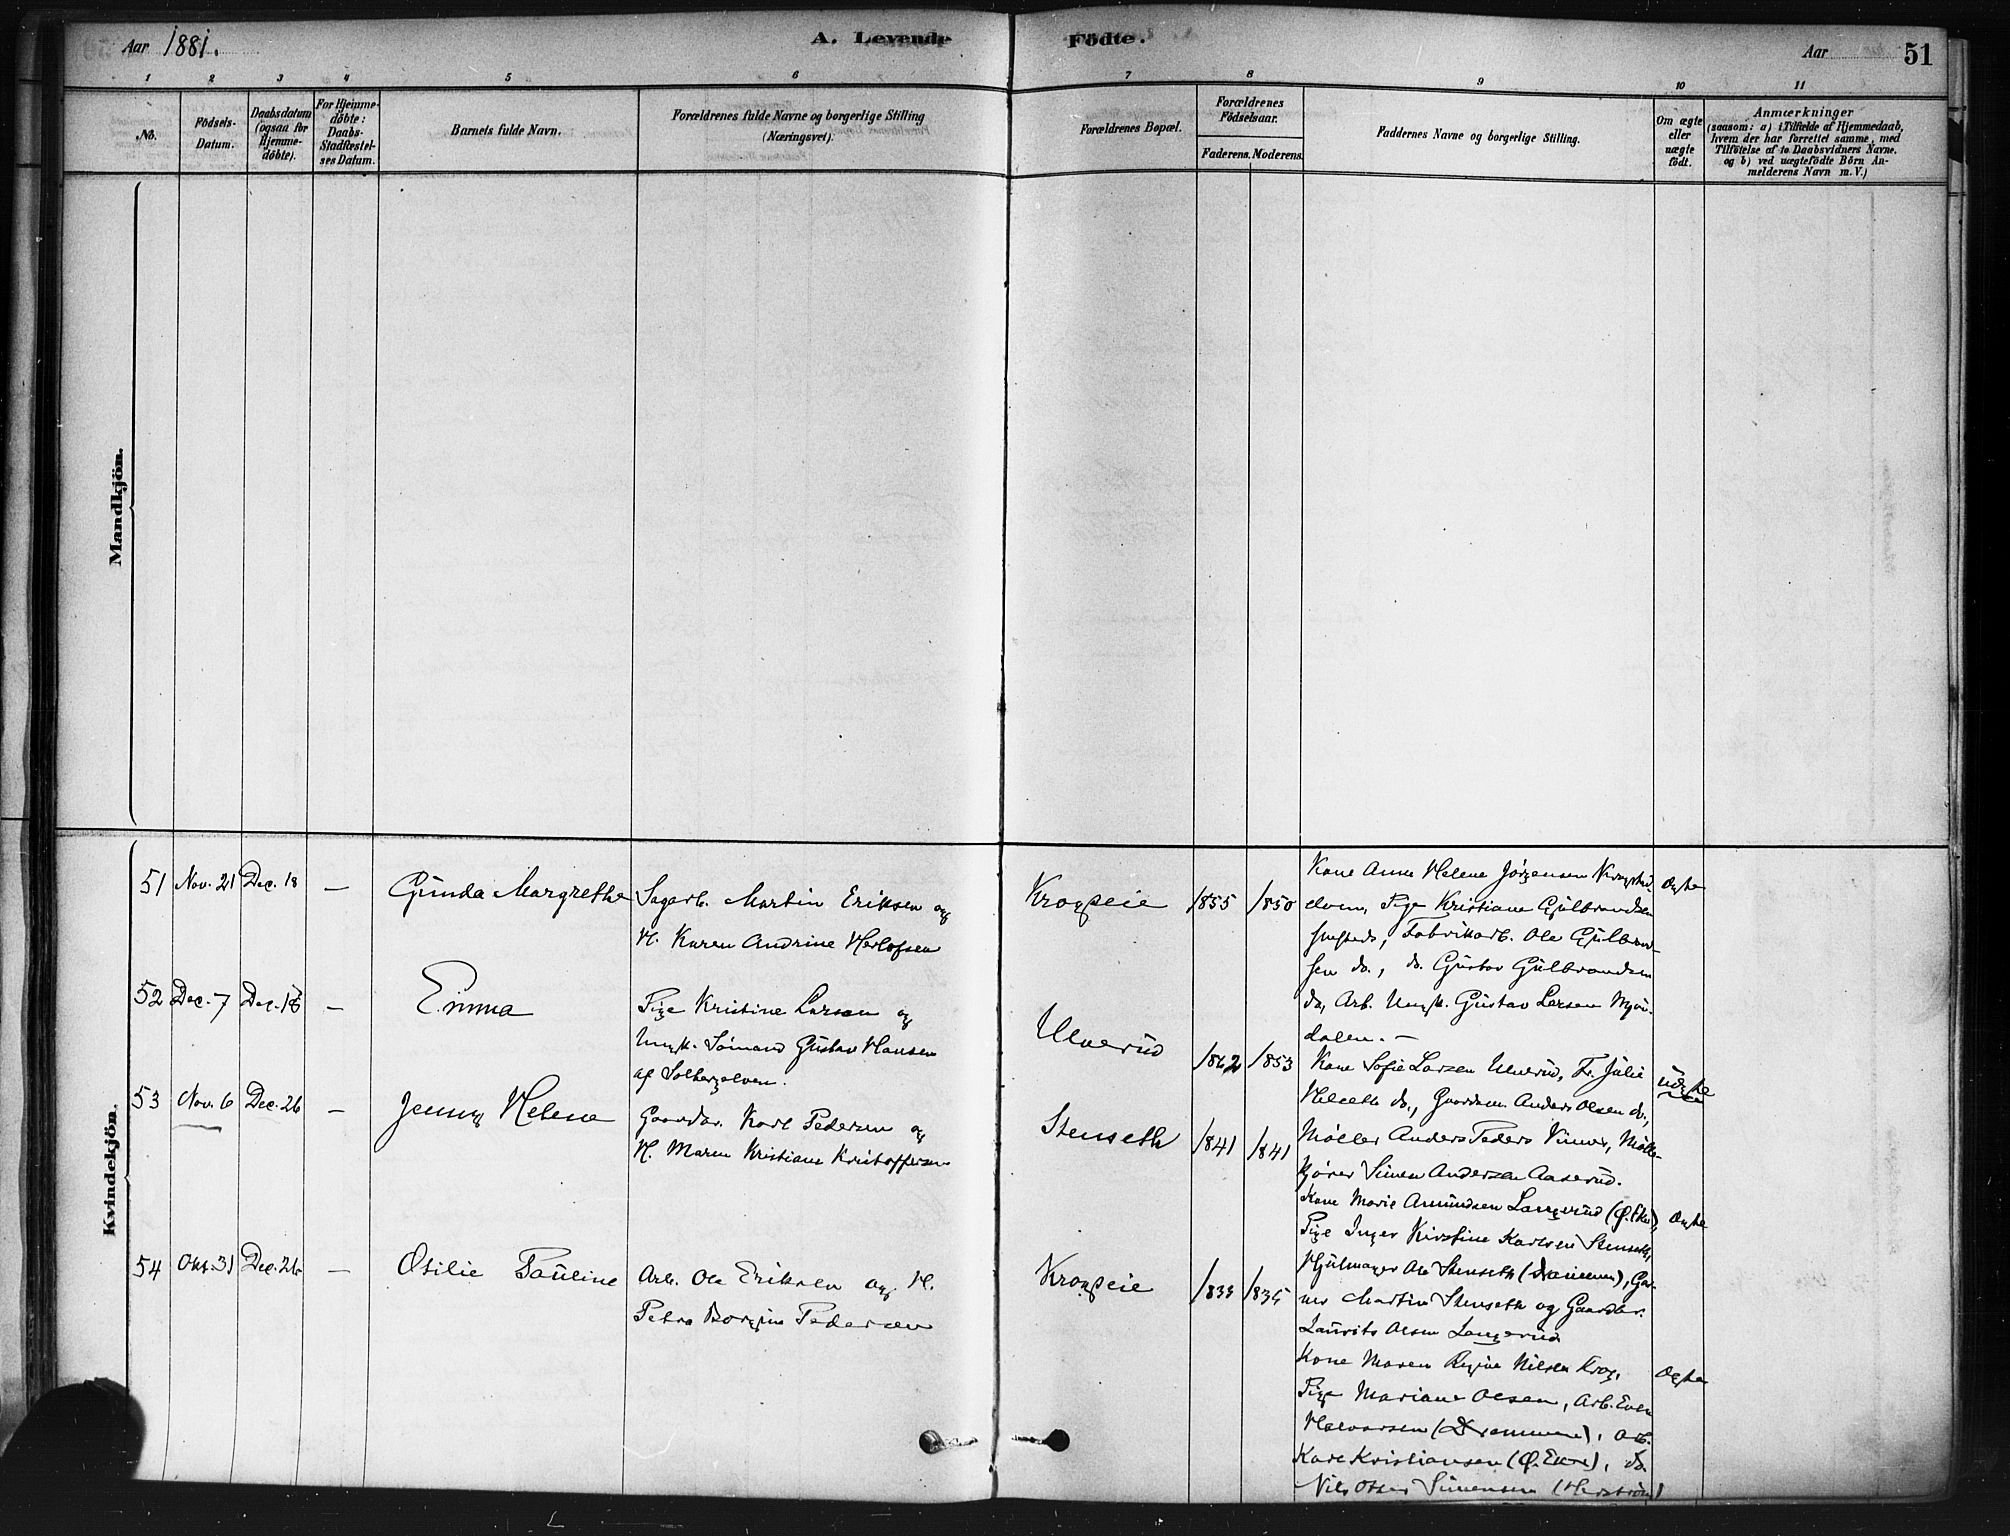 Aar 1881.
A. Levende Födte.
Aar 51
1 2 3 4 5 6 7 8 9 10 11
No.
Födsels-Datum.
Daabsdatum (ogsaa for Hjemme-döbte).
For Hjemme-döbte: Daabs-Stadfæstel-ses Datum.
Barnets fulde Navn.
Forældrenes fulde Navne og borgerlige Stilling (Næringsvei).
Forældrenes Bopæl.
Forældrenes Födselsaar.
Faderens. Moderens.
Faddernes Navne og borgerlige Stilling.
Om ægte eller uægte födt.
Anmærkninger
(saasom: a) i Tilfælde af Hjemmedaab,
hvem der har forrettet samme, med
Tilföielse af to Daabsvidners Navne.
og b) ved uægtefödte Börn An-
melderens Navn m. V.)
Mandkjön.
Kvindekjön.
51 Nov. 21 Dec. 18 — Gunda Margrethe
Sagarb. Martin Eriksen og
H. Karen Andrine Herlofsen
Krogseie 1855 1850
Kone Anne Helene Jørgensen Krogstad-
elven, Pige Kristiane Gulbrandsen
sammesteds, Fabrikarb. Ole Gulbrand-
sen do., do. Gustav Gulbrandsen
do, Arb. Ungk. Gustav Larsen Mjøn-
dalen. —
Ægte
52 Dec. 7 Dec. 18 — Emma
Pige Kristine Larsen og
Ungk. Sømand Gustav Hansen
af Solbergelven.
Ulverud 1862 1853
Kone Sofie Larsen Ulverud, Fr. Julie
Helseth do., Gaardm. Anders Olsen do,
Møller Anders Peders, Mølle-
kjører Simen Andersen Aaserud.
Uægte
53 Nov. 6 Dec. 26 — Jenny Helene
Gaardbr. Karl Pedersen og
H. Maren Kristiane Kristoffersen
Stenseth 1841 1841
Kone Marie Amundsen Langerud (Ø. Eker),
Pige Inger Kirstine Karlsen Stenseth,
Hjulmager Ole Stenseth (Drammen), Gar-
ver Martin Stenseth og Gaardbr.
Laurits Olsen Langerud
Ægte
54 Okt. 31 Dec. 26 — Otilie Pauline
Arb. Ole Eriksen og H.
Petra Borgine Pedersen
Krogseie 1833 1835
Kone Maren Regine Nilsen Krog,
Pige Mariane Olsen, Arb. Even
Halvorsen (Drammen), Arb.
Karl Kristiansen (Ø. Eker), do.
Nils Simensen
Ægte